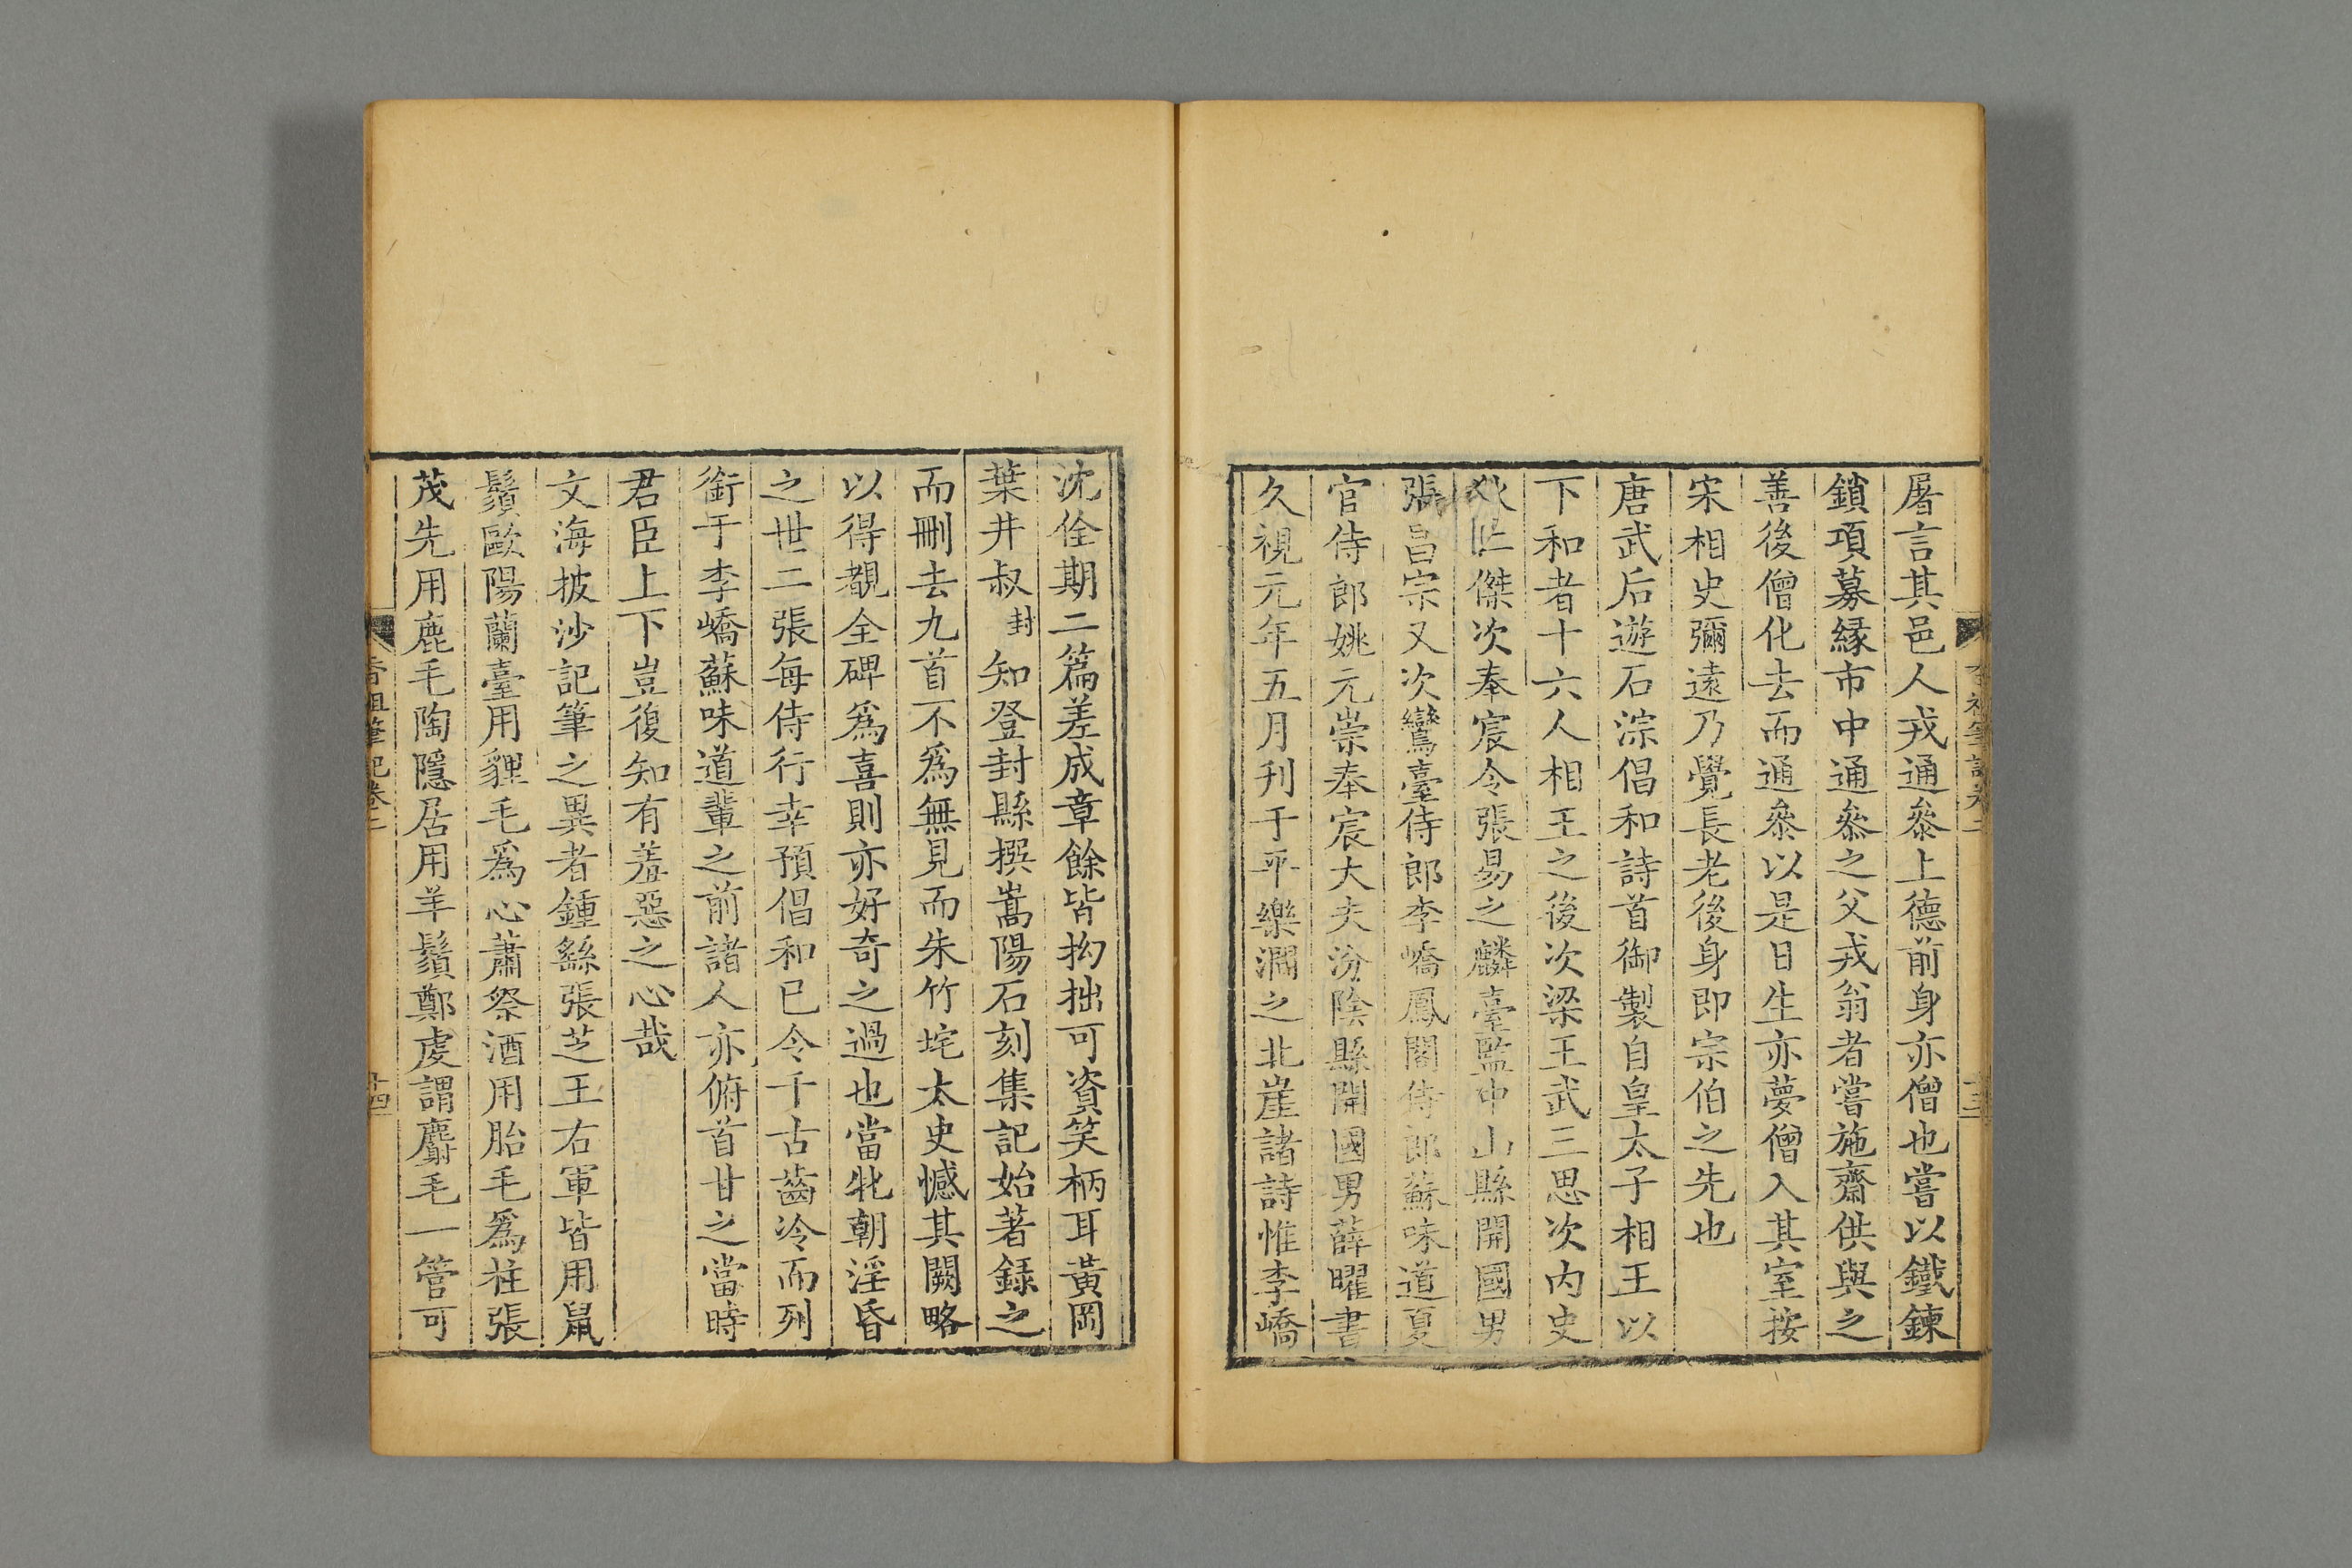 屠言其邑人戎通叅上德前身亦僧也嘗以鐵鍊
鎖項募緣市中通叅之父戎翁者嘗施齋供與之
善後僧化去而通叅以是日生亦夢僧入其室按
宋相史彌遠乃覺長老後身即宗伯之先也
唐武后遊石淙倡和詩首御製自皇太子相王以
下和者十六人相王之後次梁王武三思次内史
狄仁傑次奉宸令張易之麟臺監中山縣開國男
張昌宗又次鸞臺侍郎李嶠鳳閣侍郎蘇味道夏
官侍郎姚元崇奉宸大夫汾陰縣開國男薛曜書
久視元年五月刊于平樂澗之北崖諸詩惟李嶠
沈佺期二篇差成章餘皆拗拙可資笑柄耳黃岡
葉井叔封知登封縣撰嵩陽石刻集記始著錄之
而刪去九首不爲無見而朱竹垞太史憾其闕略
以得覩全碑爲喜則亦好奇之過也當牝朝淫昏
之世二張每侍行幸預倡和已令千古齒冷而列
銜于李嶠蘇味道輩之前諸人亦俯首甘之當時
君臣上下豈復知有羞惡之心哉
文海披沙記筆之異者鍾繇張芝王右軍皆用鼠
鬚歐陽蘭臺用貍毛爲心蕭祭酒用胎毛爲柱張
茂先用鹿毛陶隱居用羊鬚鄭虔謂麝毛一管可
香祖筆記卷二
十四